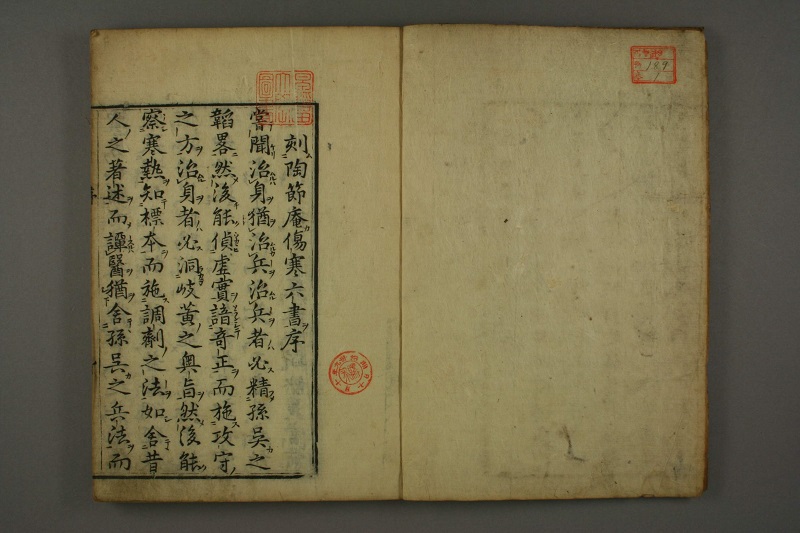 刻陶節庵傷寒六書序
嘗聞治身猶治兵治兵者必精孫吳之
韜畧然後能偵虛實諳奇正而施攻守
之方治身者必洞岐黃之奧旨然後能
察寒熱知標本而施調劑之法如舍昔
人之著述而譚醫猶舍孫吳之兵法而